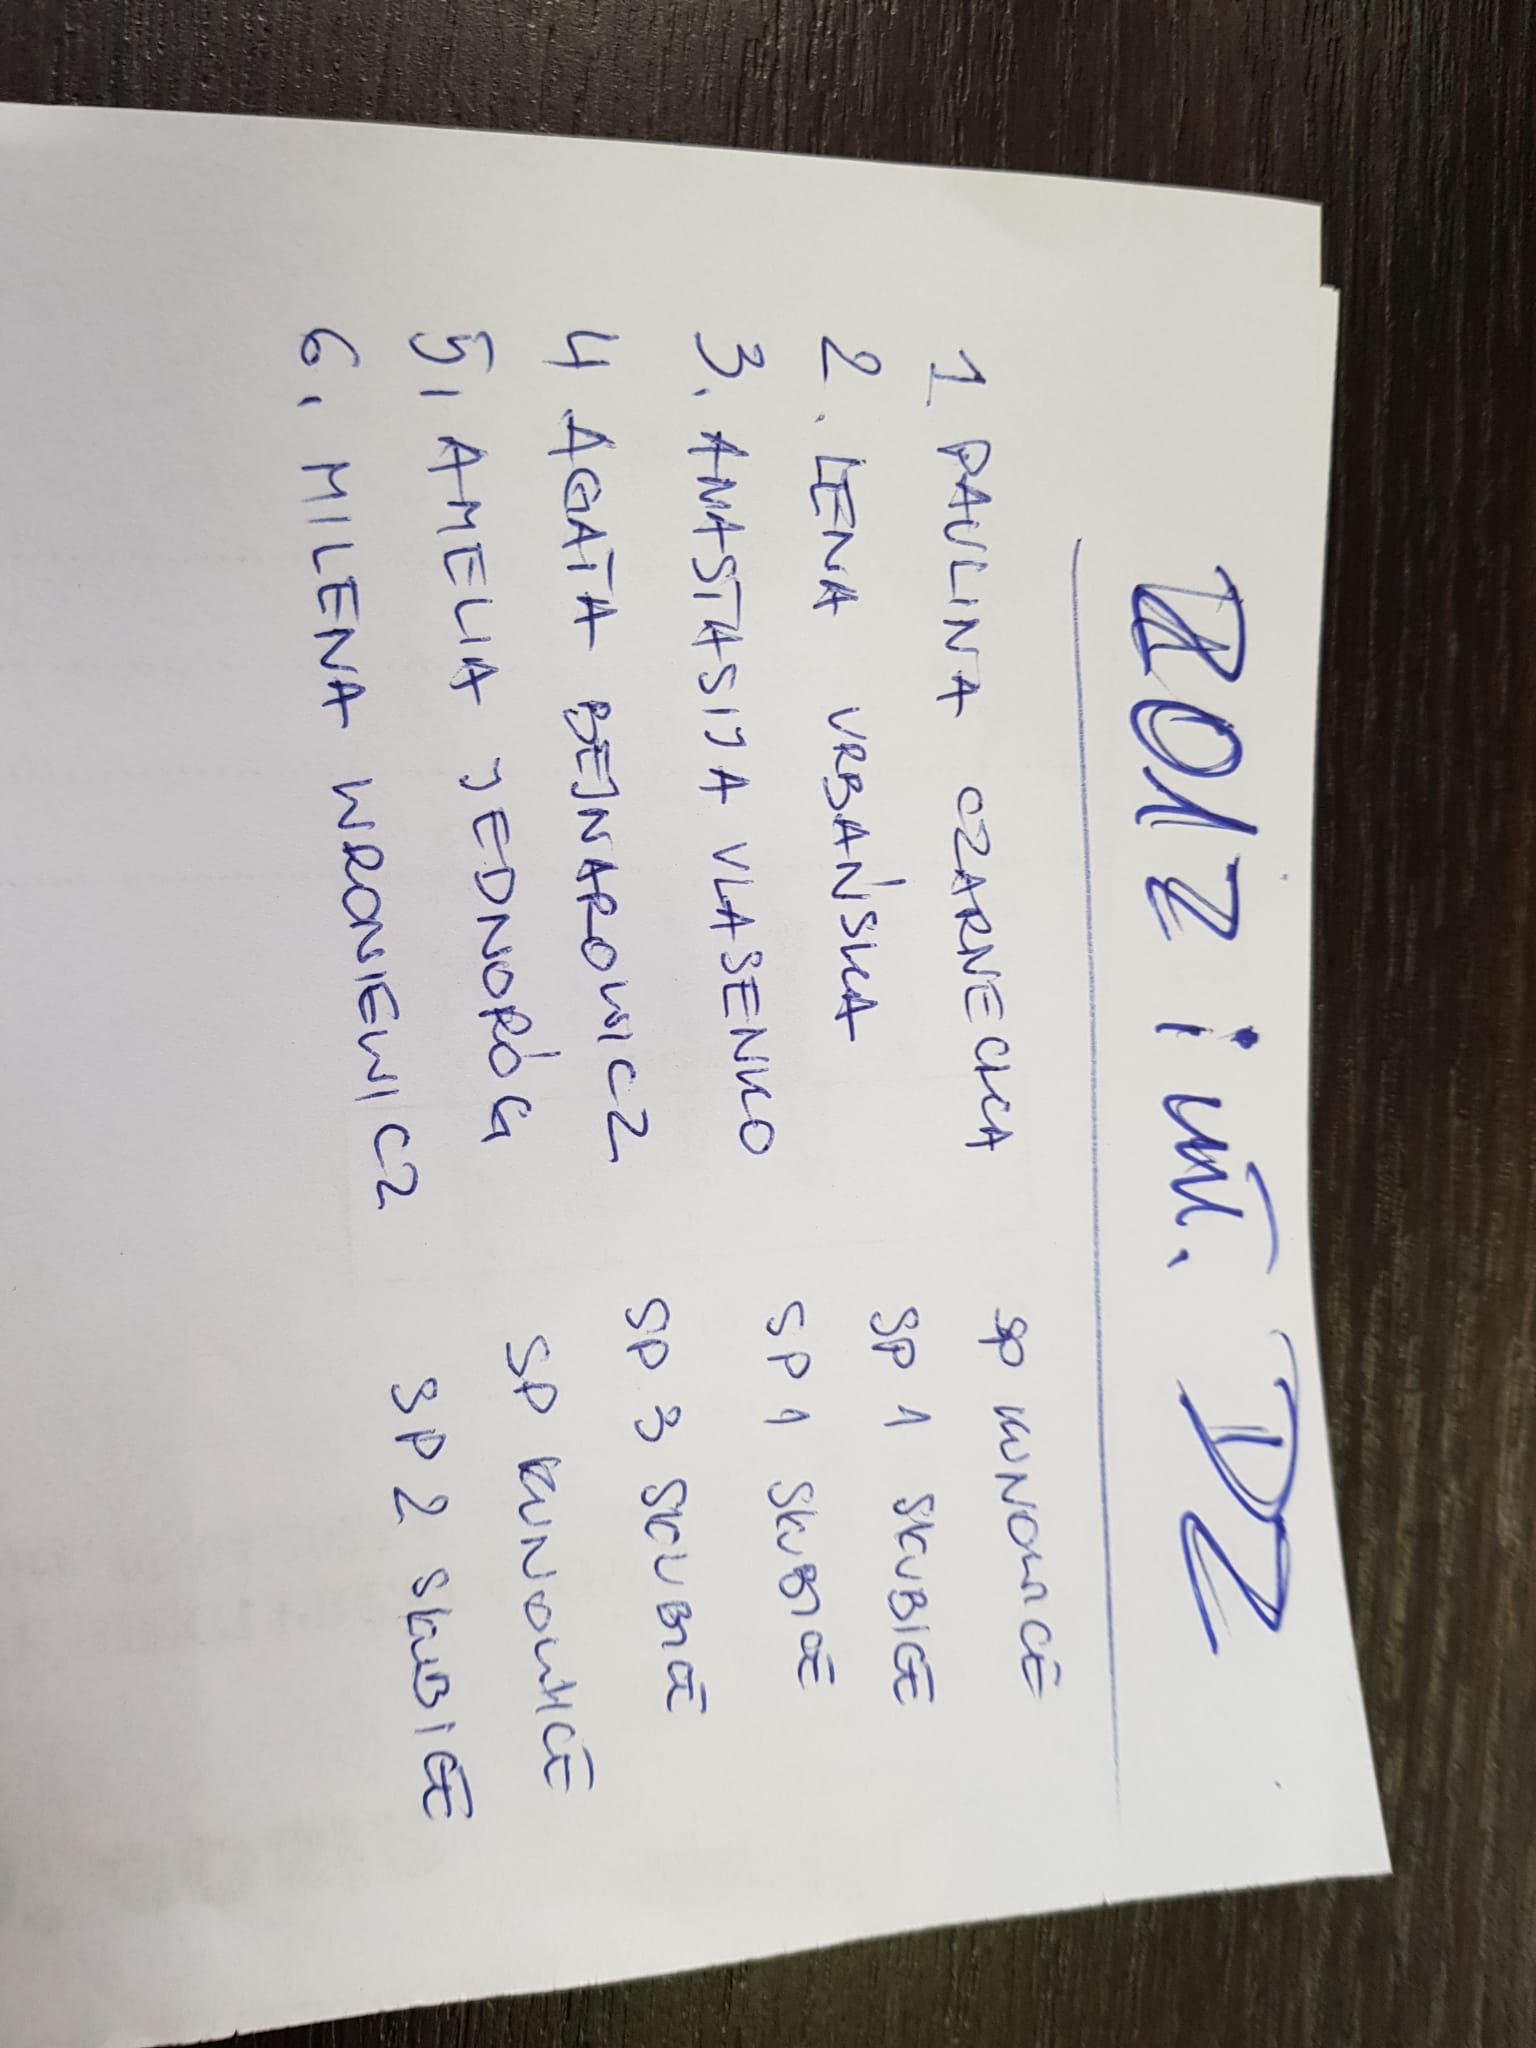 2012 i mł. DZ
1. PAULINA CZARNECKA SP KUNOWICE
2. LENA URBAŃSKA SP 1 SŁUBICE
3. ANASTASIJA VLASENKO SP 1 SŁUBICE
4 AGATA BEJNAROWICZ SP 3 SŁUBICE
5. AMELIA JEDNORÓG SP KUNOWICE
6. MILENA WRONIEWICZ SP 2 SŁUBICE